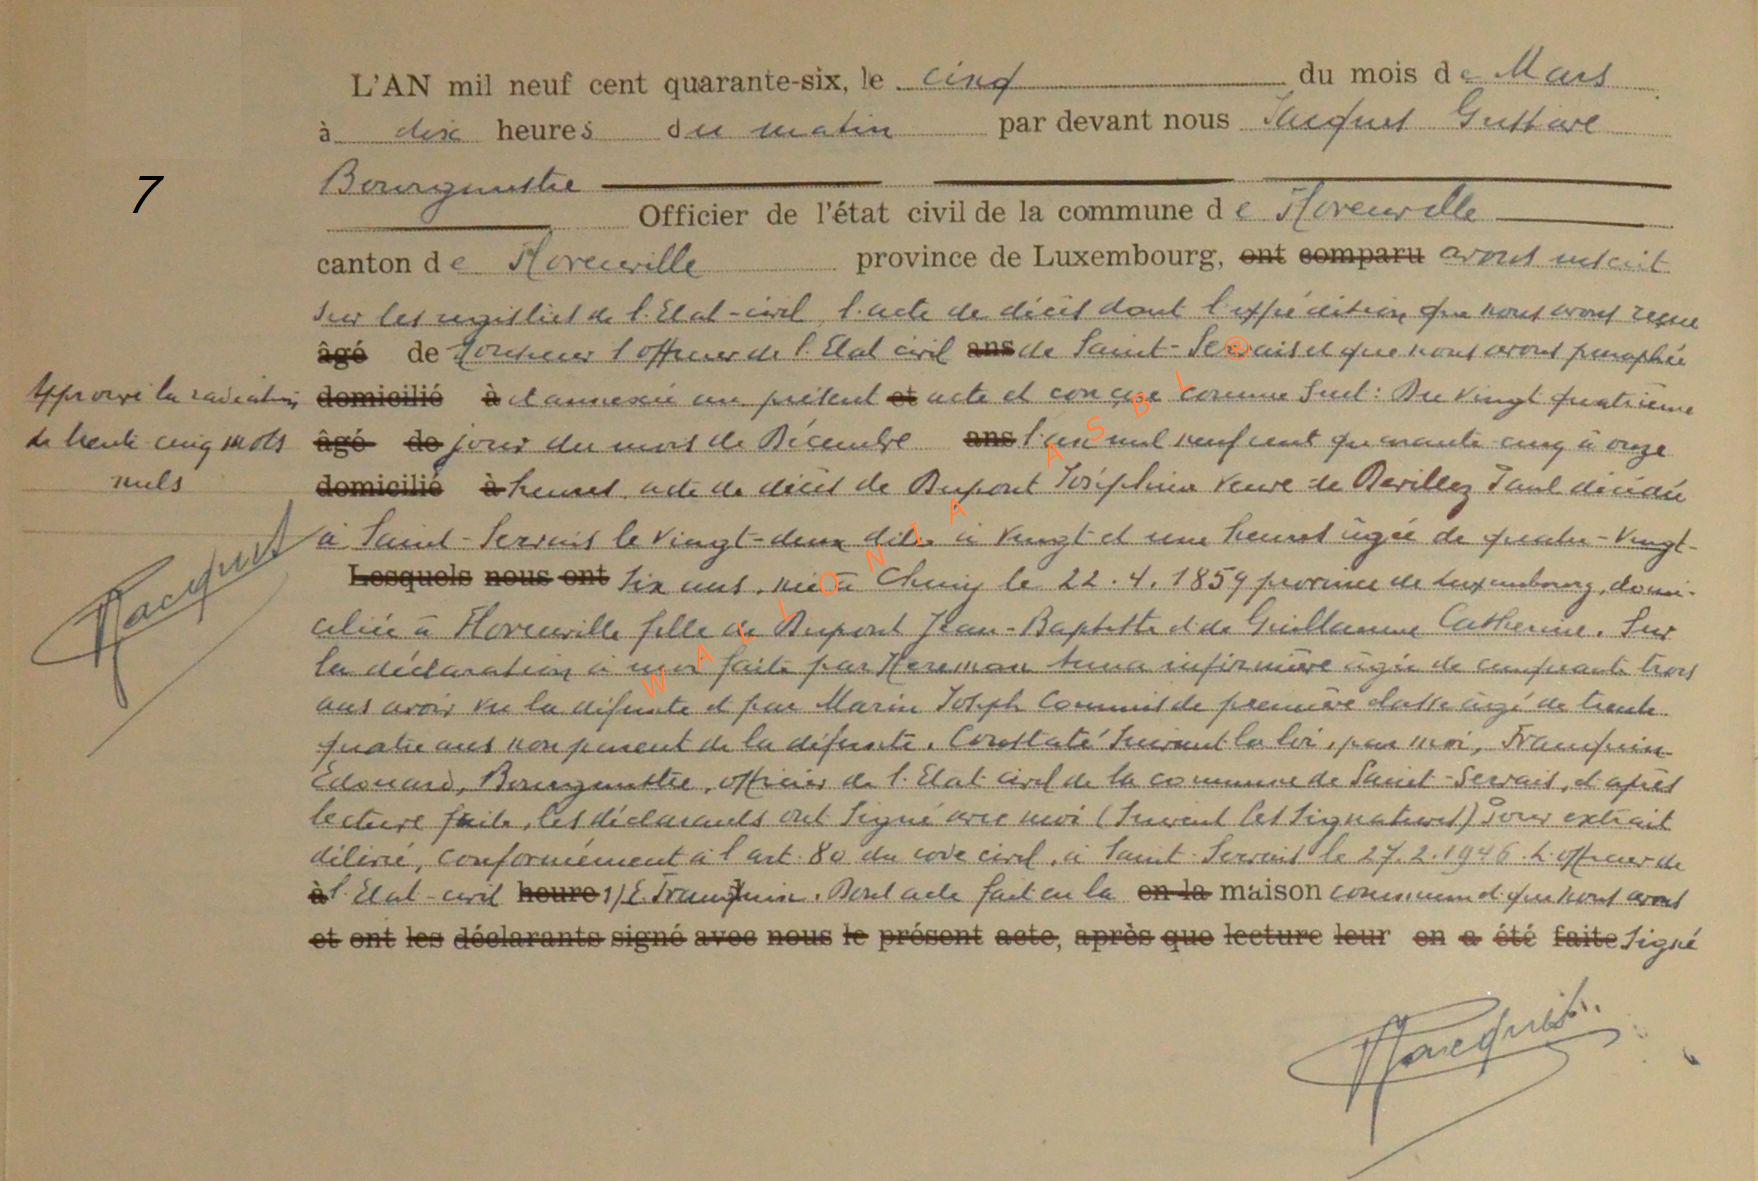 L'AN mil neuf cent quarante-six, le cinq du mois de Mars
à dix heures du matin par devant nous Jacques Gustave
7
Bourgmestre
Officier de l'état civil de la commune de Florenville
canton de Florenville province de Luxembourg, ont comparu avons inscrit
sur les registres de l'Etat-civil, l'acte de décès dont l'expédition que nous avons reçue
âgé de Monsieur l'officier de l'Etat civil ans de Saint-Servais et que nous avons paraphée
Approuvé la radiation domicilié à et annexée au présent et acte et conçue comme suit : Du vingt quatrième
de trente cinq mots âgé de jour du mois de Décembre ans l'an mil neuf cent quarante cinq à onze
nuls domicilié à heures, acte de décès de Dupont Joséphine veuve de Devillez Paul décédée
à Saint-Servais le vingt-deux dito à vingt et une heures âgée de quatre-vingt-
Lesquels nous ont six ans, née à Chiny le 22.4.1859 province de Luxembourg, domi-
ciliée à Florenville fille de Dupont Jean-Baptiste et de Guillaume Catherine. Sur
la déclaration à moi faite par Hereman Anna infirmière âgée de cinquante trois
ans avoir vu la défunte et par Marin Joseph Commis de première classe âgé de trente
quatre ans non parent de la défunte. Constaté suivant la loi, par moi, Franquin
Edouard, Bourgmestre, officier de l'Etat civil de la commune de Saint-Servais, et après
lecture faite, les déclarants ont signé avec moi (suivent les signatures) Pour extrait
délivré, conformément à l'art. 80 du code civil, à Saint-Servais le 27.2.1946. L'officier de
à l'Etat-civil heure s/ E. Franquin. Dont acte fait en la en la maison communale et que nous avons
et ont les déclarants signé avec nous le présent acte, après que lecture leur en a été faite signé
WALLONIA ASBL ®